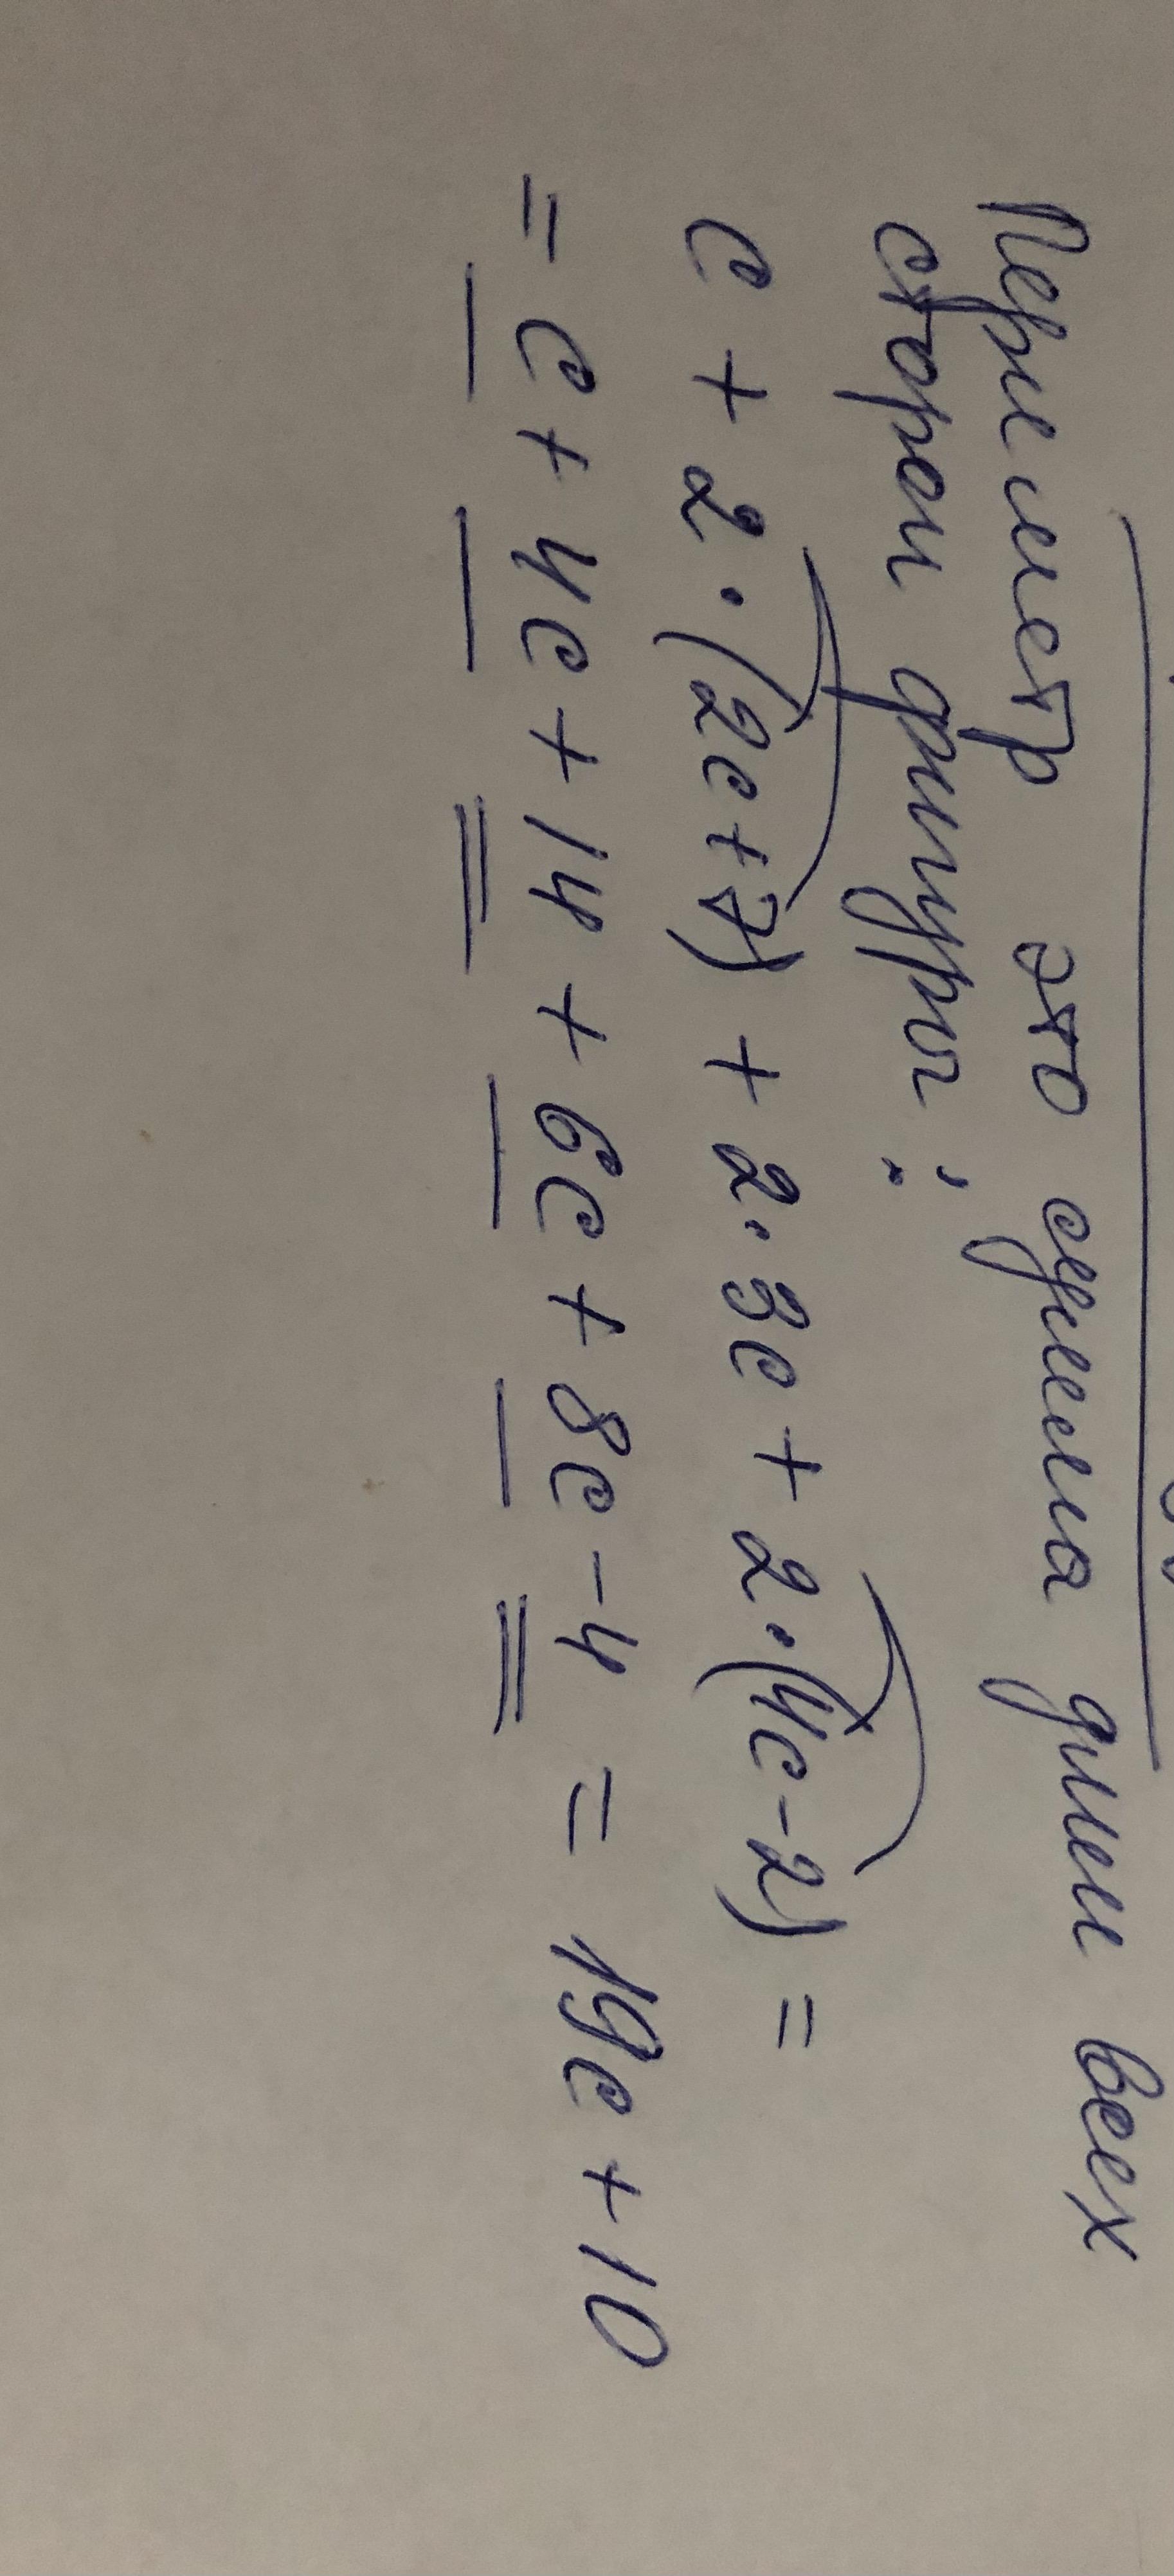 Периметр это сумма длин всех
сторон фигуры:
c + 2·(2c+7) + 2·3c + 2·(4c-2) =
= c + 4c + 14 + 6c + 8c - 4 = 19c + 10